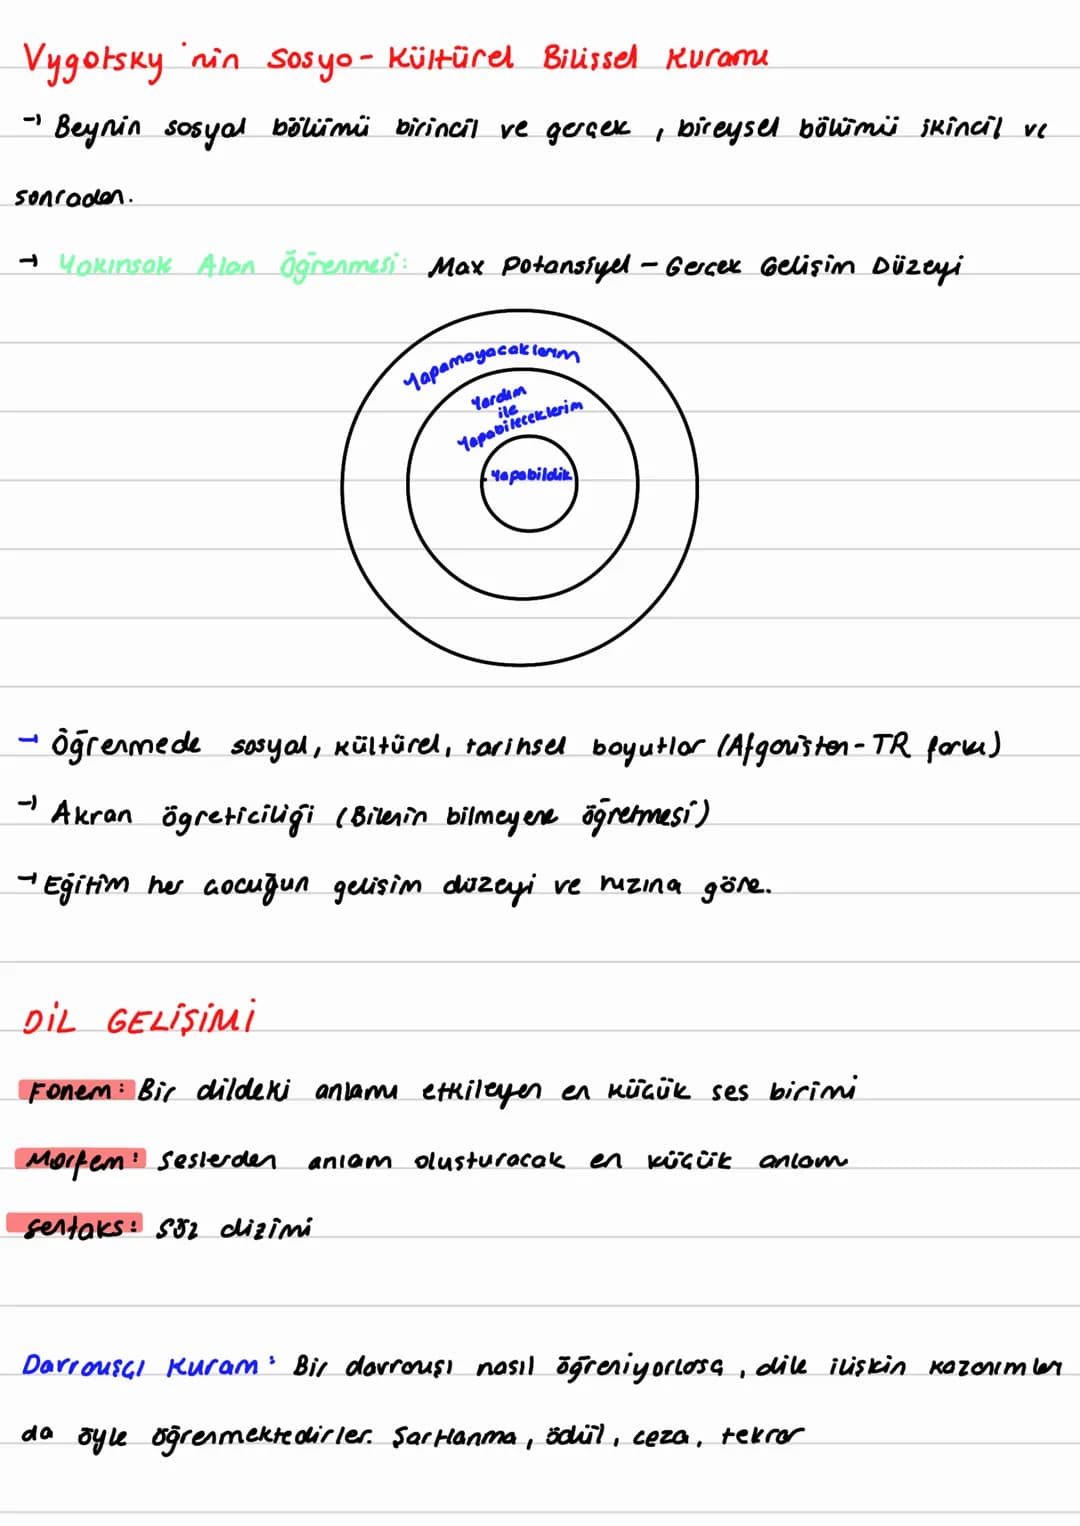 Vygotsky'nin Sosyo-Kültürel Bilişsel Kuramı
→ Beynin sosyal bölümü birincil ve gerçek, bireysel bölümü ikincil ve
sonradan.
→ Yakınsak Alan Öğrenmesi: Max Potansiyel - Gerçek Gelişim Düzeyi
Yapamayacaklarım
Yardım
ile
Yapabileceklerim
Yapabildik
→ Öğrenmede sosyal, kültürel, tarihsel boyutlar (Afganistan-TR farkı)
→ Akran öğreticiliği (Bilenin bilmeyene öğretmesi)
→ Eğitim her çocuğun gelişim düzeyi ve hızına göre.
DİL GELİŞİMİ
Fonem: Bir dildeki anlamı etkileyen en küçük ses birimi
Morfem: Seslerden anlam oluşturacak en küçük anlam
Sentaks: Söz dizimi
Davranışçı Kuram: Bir davranışı nasıl öğreniyorlarsa, dile ilişkin kazanımları
da öyle öğrenmektedirler. Şartlanma, ödül, ceza, tekrar